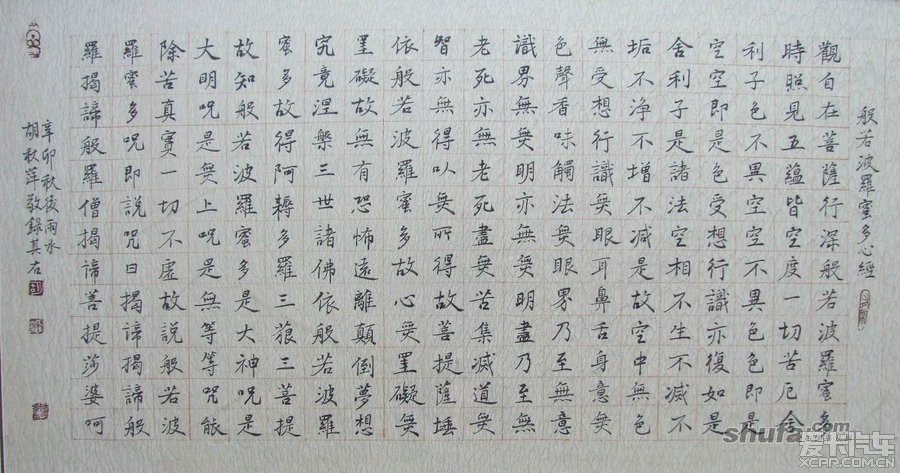 般若波羅蜜多心經
觀自在菩薩行深般若波羅蜜多
時照見五蘊皆空度一切苦厄舍
利子色不異空空不異色色即是
空空即是色受想行識亦復如是
舍利子是諸法空相不生不滅不
垢不淨不增不減是故空中無色
無受想行識無眼耳鼻舌身意無
色聲香味觸法無眼界乃至無意
識界無無明亦無無明盡乃至無
老死亦無老死盡無苦集滅道無
智亦無得以無所得故菩提薩埵
依般若波羅蜜多故心無罣礙無
罣礙故無有恐怖遠離顛倒夢想
究竟涅槃三世諸佛依般若波羅
蜜多故得阿耨多羅三藐三菩提
故知般若波羅蜜多是大神呪是
大明呪是無上呪是無等等呪能
除苦真實一切不虛故說般若波
羅蜜多呪即說呪曰揭諦揭諦般
羅揭諦般羅僧揭諦菩提莎婆呵
辛卯秋後雨水
胡秋萍敬錄其右
爱卡汽车
XCAR.COM.CN